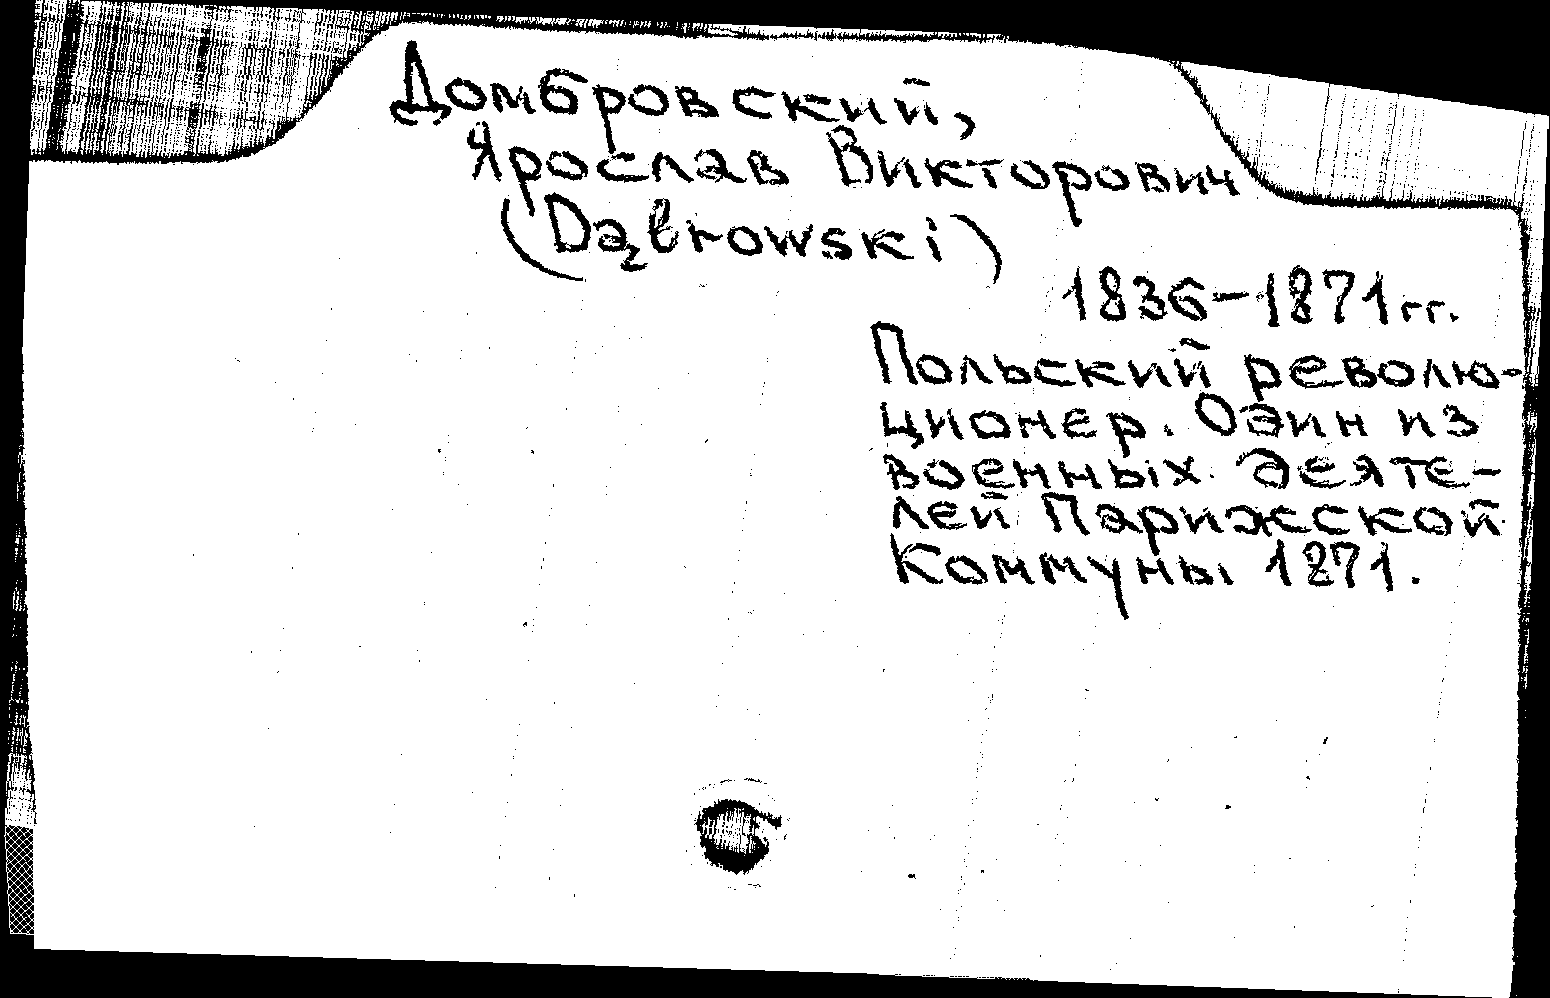 Домбровский,
Ярослав Викторович
(Dąbrowski)
1836-1871гг.
Польский револю-
ционер. Один из
военных деяте-
лей Парижской
Коммуны 1871.